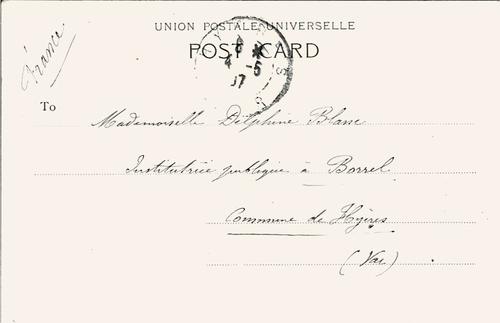 UNION POSTALE UNIVERSELLE
POST CARD
France
To
Mademoiselle Delphine Blanc
Institutrice publique à Borrel
Commune de Hyères
(Var)